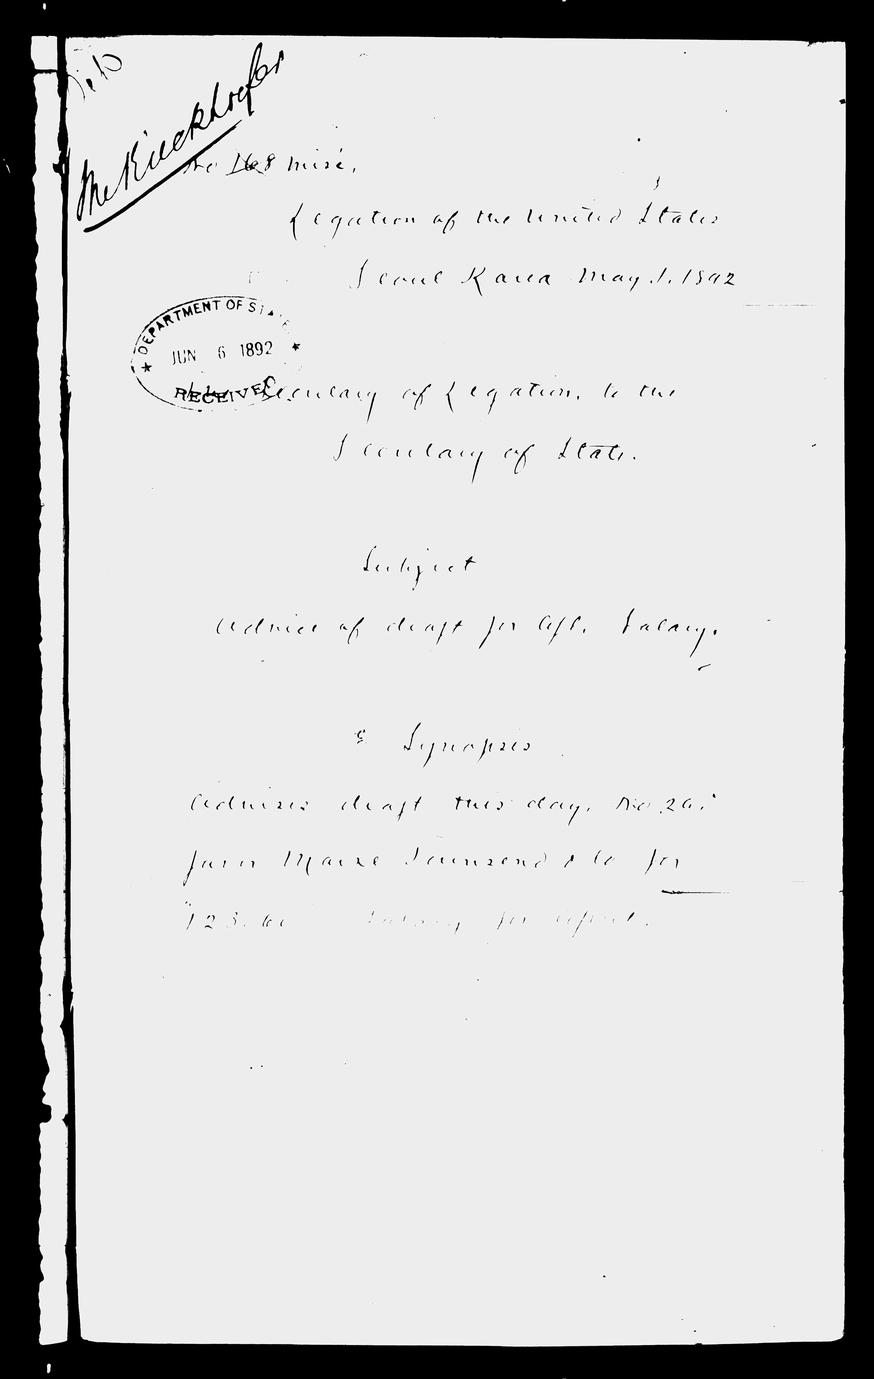 Mr Kieckhoefer
No 168 Misc.
Legation of the United States
Seoul Korea May 1. 1892
DEPARTMENT OF STATE
JUN 6 1892
RECEIVED
The Secretary of Legation, to the
Secretary of State.
Subject
Advice of draft for Apl. Salary.
Synopsis
Advises draft this day, No
favor Morse Townsend & Co for
Salary for April.